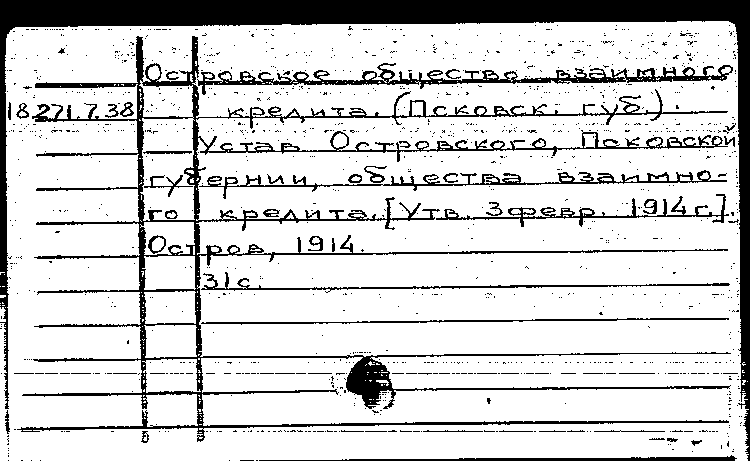 Островское общество взаимного
18.271.7.38 кредита. (Псковск. губ.).
Устав Островского, Псковской
губернии, общества взаимно-
го кредита. [Утв. 3 февр. 1914 г.].
Остров, 1914.
31 с.